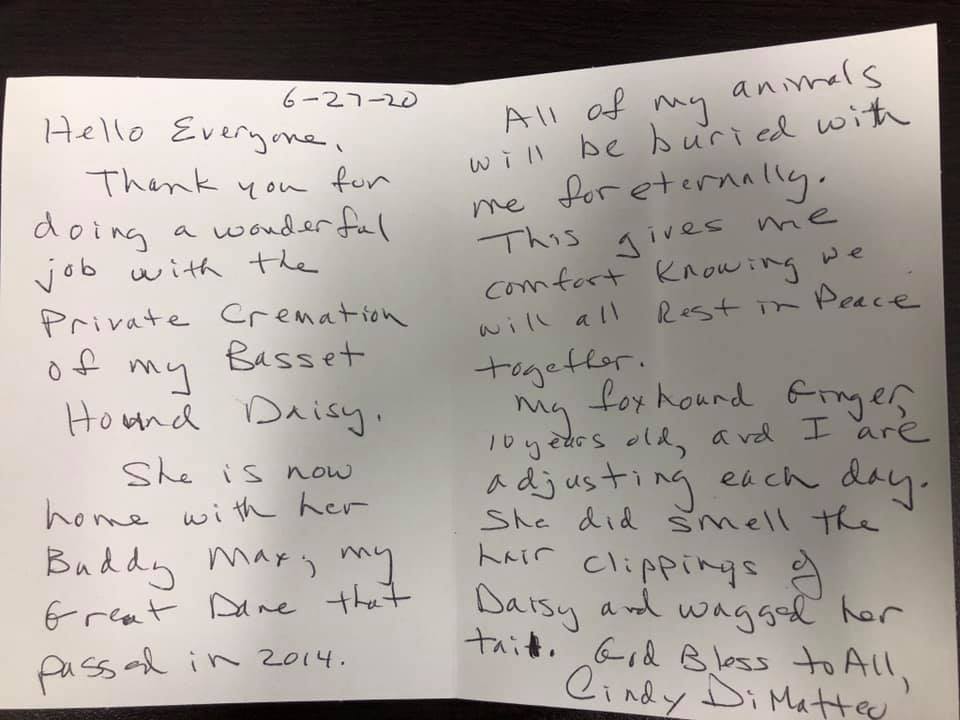 6-27-20
Hello Everyone,
Thank you for
doing a wonderful
job with the
Private Cremation
of my Basset
Hound Daisy.
She is now
home with her
Buddy Max; my
Great Dane that
passed in 2014.
All of my animals
will be buried with
me for eternally.
This gives me
comfort knowing we
will all Rest in Peace
together.
My foxhound Ginger,
10 years old, and I are
adjusting each day.
She did smell the
hair clippings of
Daisy and wagged her
tail. God Bless to All,
Cindy DiMatteo